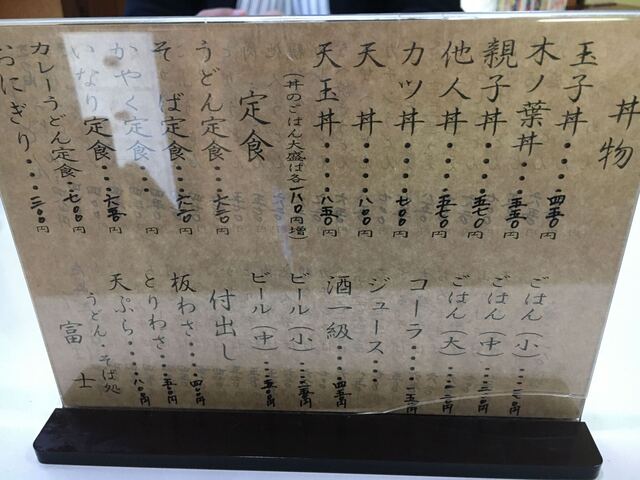 丼物
玉子丼・・・・四五〇円
木ノ葉丼・・・五五〇円
親子丼・・・・五七〇円
他人丼・・・・五七〇円
カツ丼・・・・七〇〇円
天丼・・・・八〇〇円
天玉丼・・・・八五〇円
(丼のごはん大盛は各一八〇円増)
定食
うどん定食・・・六三〇円
そば定食・・・六三〇円
かやく定食・・・円
いなり定食・・・六五〇円
カレーうどん定食・・七〇〇円
おにぎり・・・三〇〇円
ごはん(小)
ごはん(中)
ごはん(大)
コーラ
ジュース・・・
酒一級・・・四五〇円
ビール(小)
ビール(中)
付出し
板わさ・・・四〇〇円
とりわさ・・・五〇〇円
天ぷら・・・八〇〇円
うどん・そば処
富士